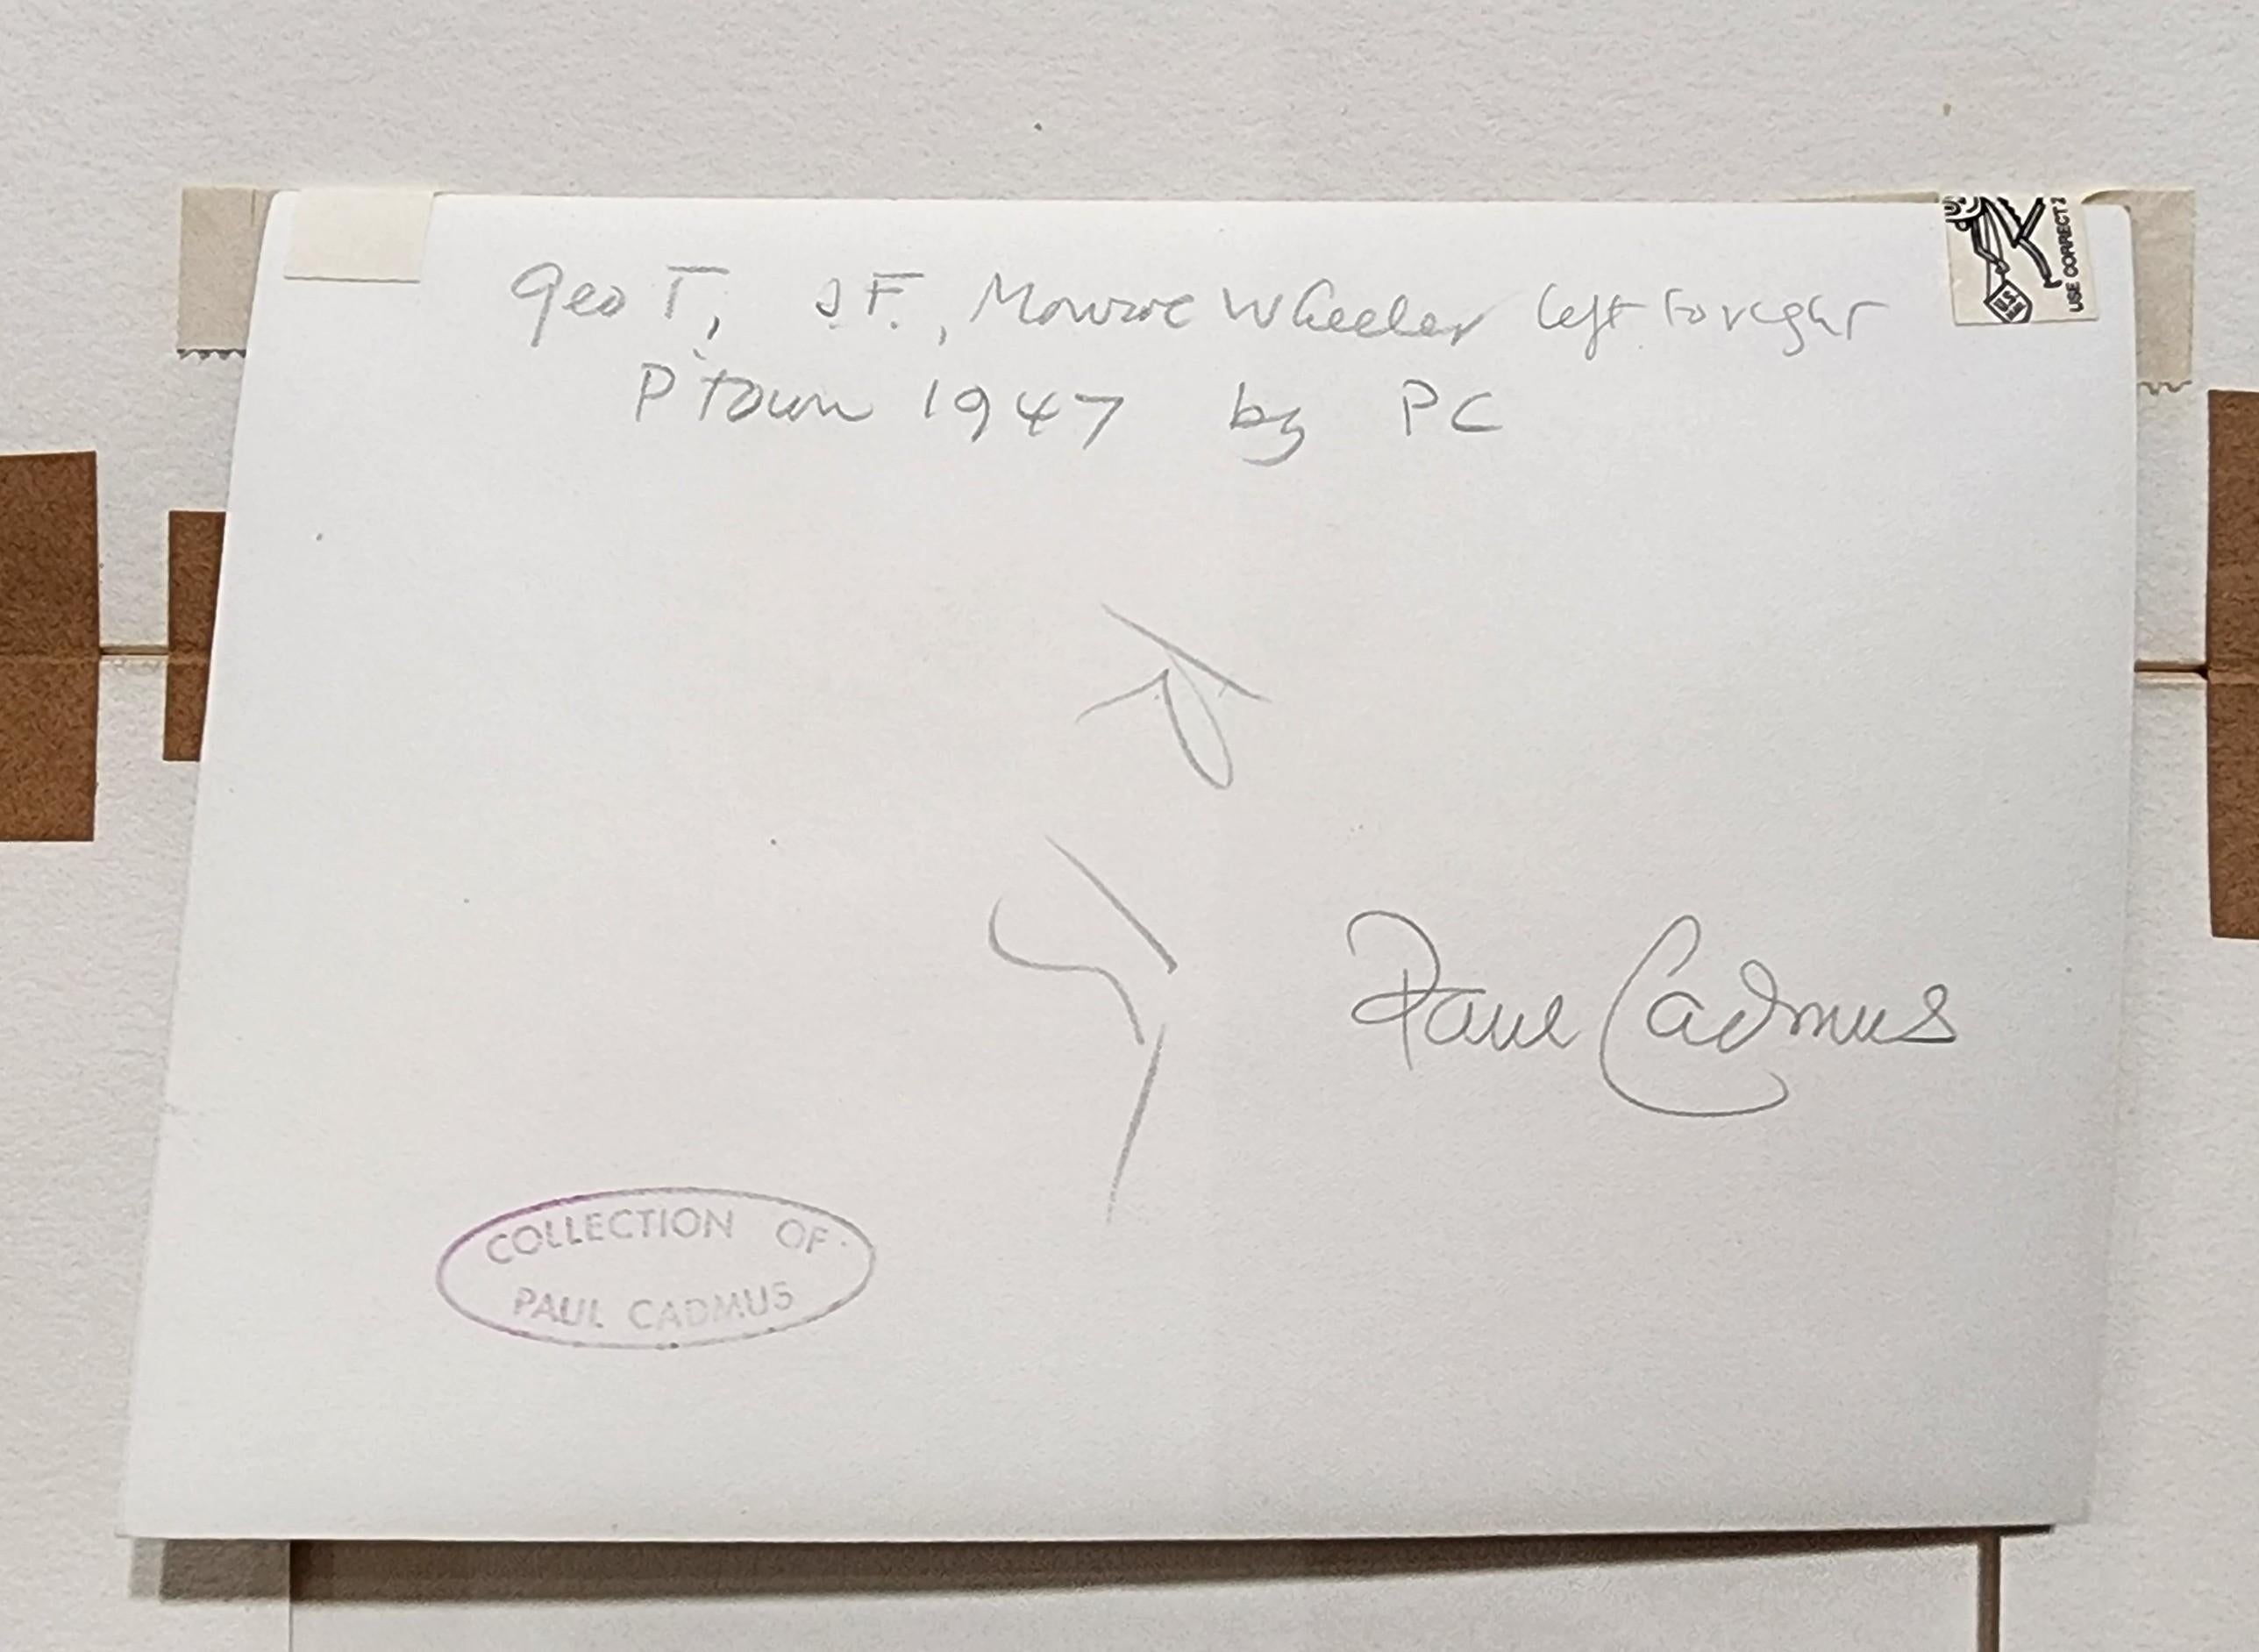 Geo T, J.F., Monroe Wheeler left to right
P'town 1947 by PC
Paul Cadmus
COLLECTION OF
PAUL CADMUS
USE CORRECT